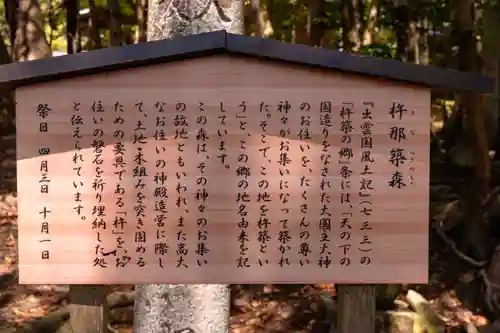 杵那築森
『出雲国風土記』(七三三)の
「杵築の郷」条には「天の下の
国造りをなされた大國主大神
のお住いを、たくさんの尊い
神々がお集いになって築かれ
た。そこで、この地を杵築とい
う」と、この郷の地名由来を記
しています。
この森は、その神々のお集い
の故地ともいわれ、また高大
なお住いの神殿造営に際し
て、土地・木組みを突き固める
ための要具である「杵」を、お
住いの磐石を祈り埋納した処
と伝えられています。
祭日 四月三日 十月一日